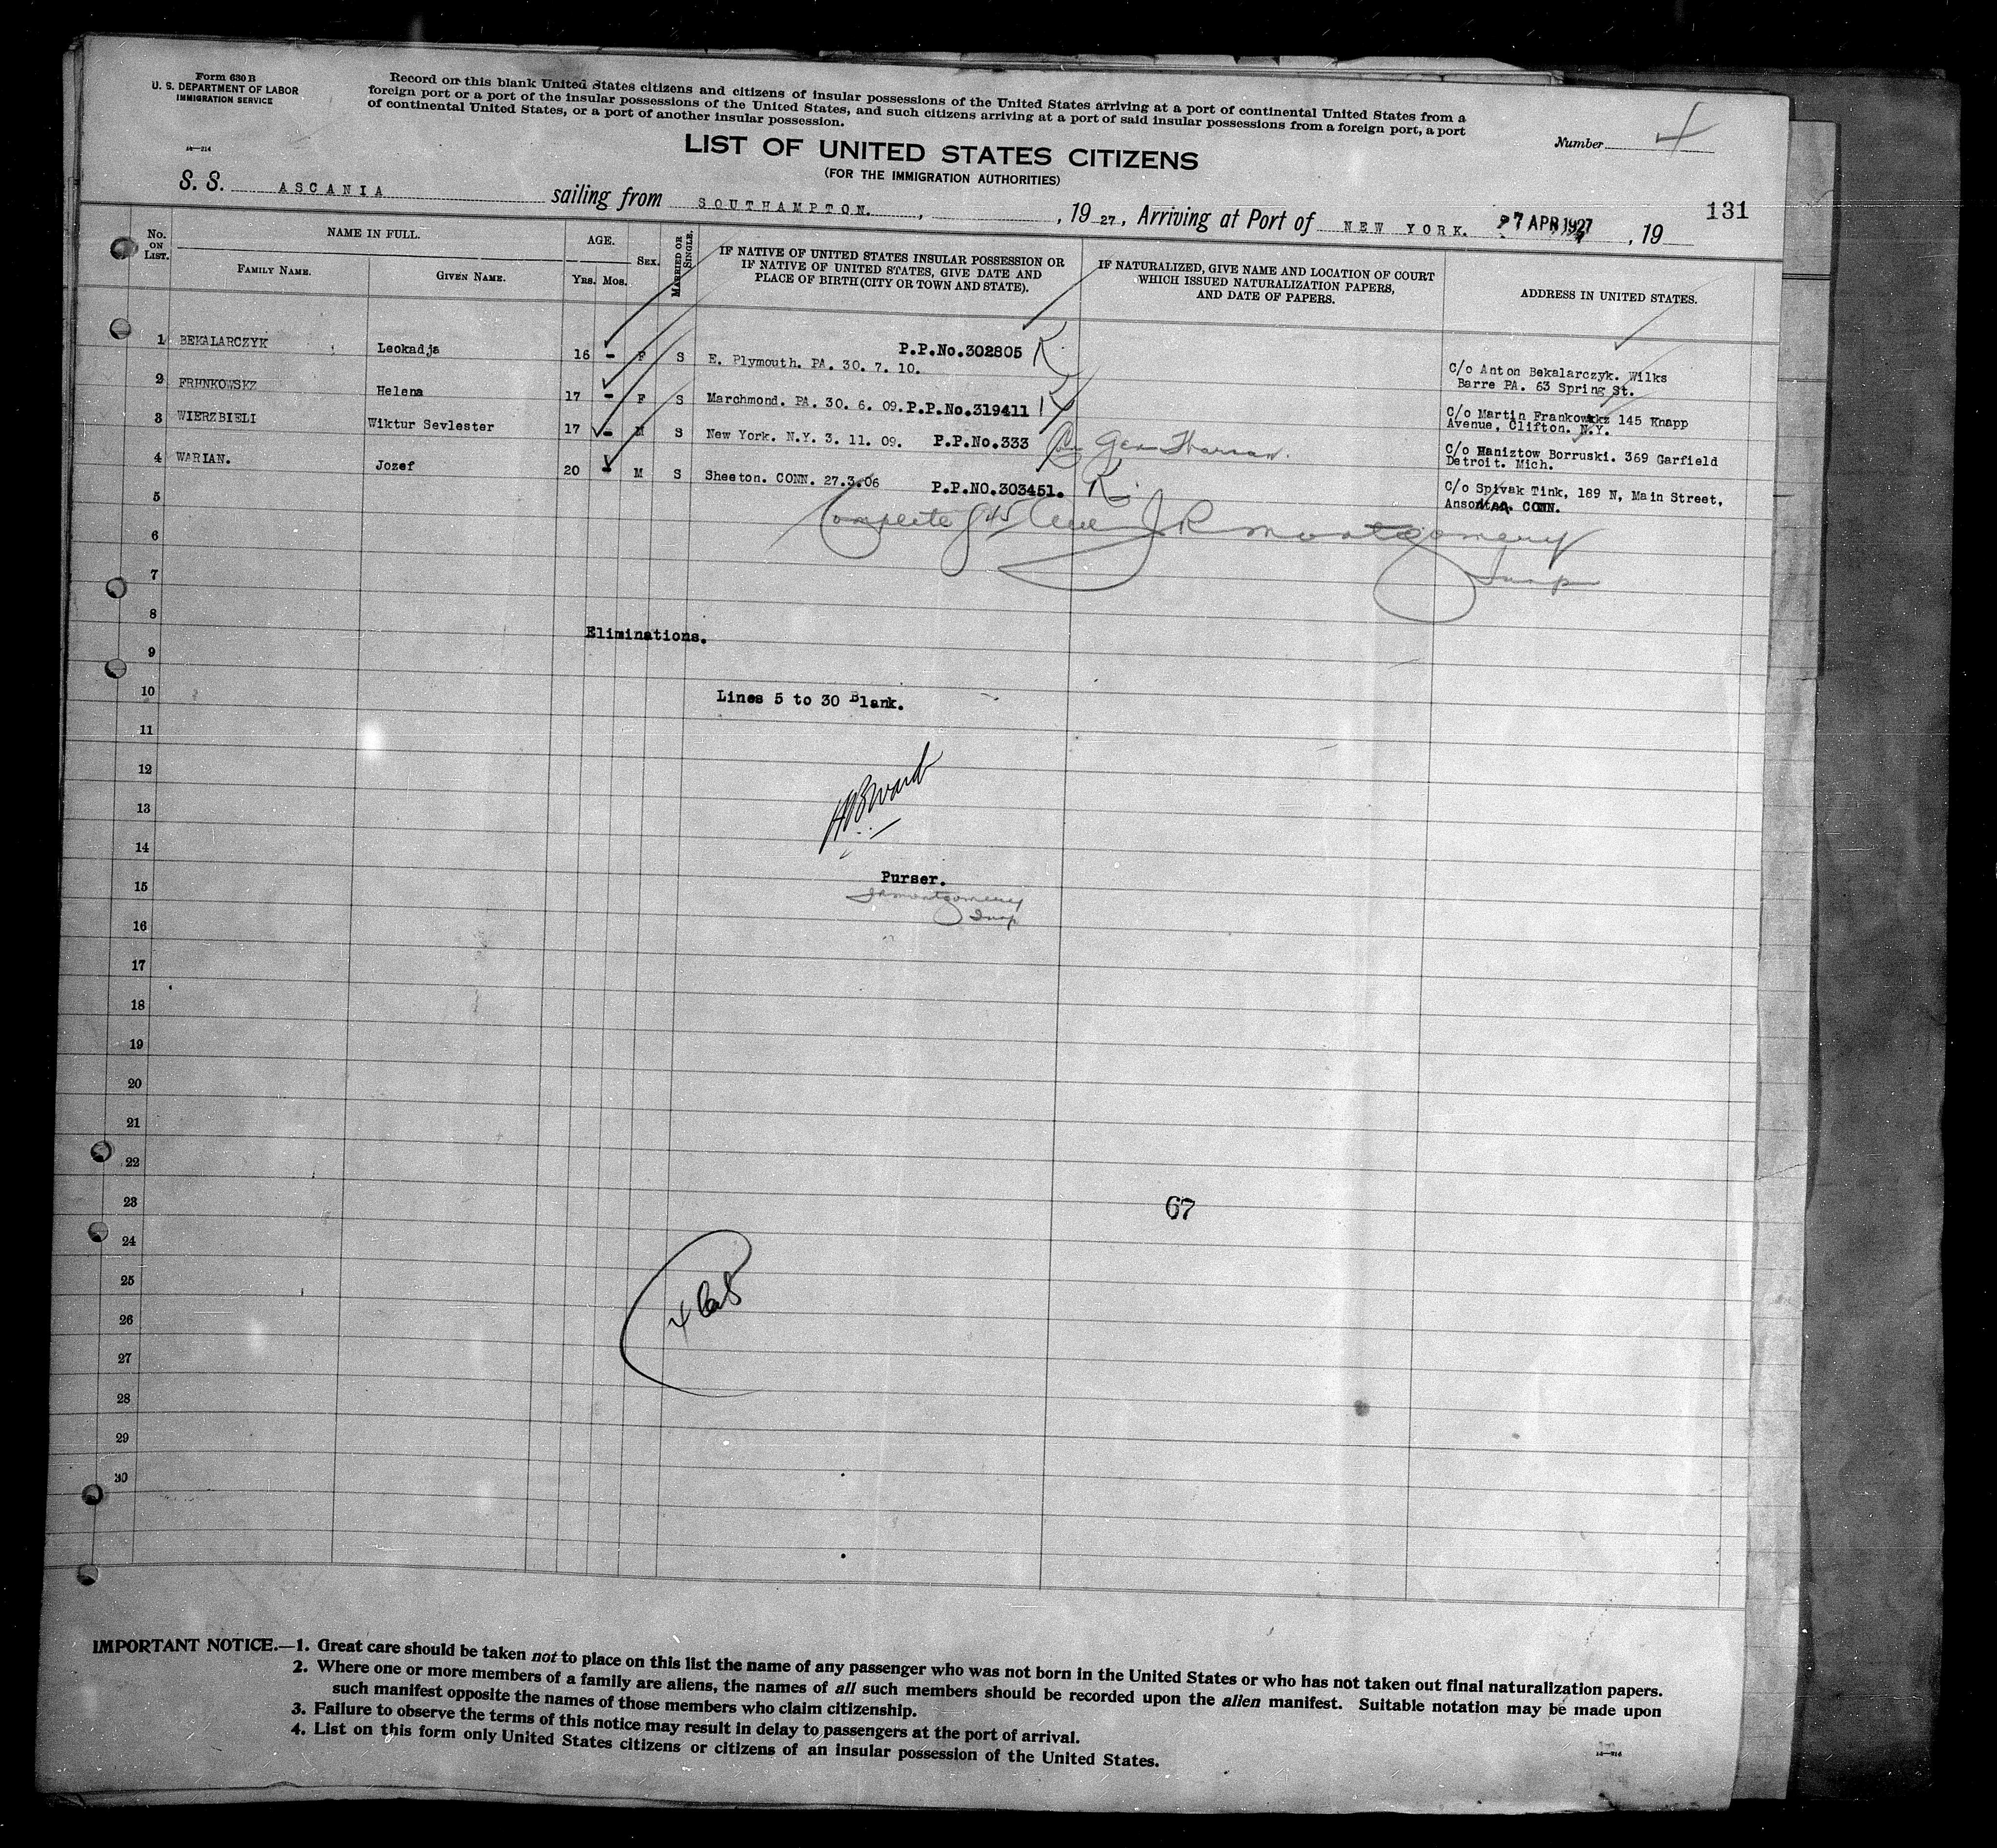 Form 630 B
U. S. DEPARTMENT OF LABOR
IMMIGRATION SERVICE
Record on this blank United States citizens and citizens of insular possessions of the United States arriving at a port of continental United States from a
foreign port or a port of the insular possessions of the United States, and such citizens arriving at a port of said insular possessions from a foreign port, a port
of continental United States, or a port of another insular possession.
Number 4
14—214
LIST OF UNITED STATES CITIZENS
(FOR THE IMMIGRATION AUTHORITIES)
S. S. ASCANIA sailing from SOUTHAMPTON. , , 19 27, Arriving at Port of NEW YORK. 27 APR 1927 , 19
131
No. ON LIST.
NAME IN FULL.
FAMILY NAME.
GIVEN NAME.
AGE.
Yrs. Mos.
SEX.
MARRIED OR SINGLE.
IF NATIVE OF UNITED STATES INSULAR POSSESSION OR
IF NATIVE OF UNITED STATES, GIVE DATE AND
PLACE OF BIRTH (CITY OR TOWN AND STATE).
IF NATURALIZED, GIVE NAME AND LOCATION OF COURT
WHICH ISSUED NATURALIZATION PAPERS,
AND DATE OF PAPERS.
ADDRESS IN UNITED STATES.
1 BEKALARCZYK Leokadja 16 - F S E. Plymouth. PA. 30. 7. 10. P.P.No.302805 C/o Anton Bekalarczyk. Wilks
Barre PA. 63 Spring St.
2 FRENKOWSKZ Helena 17 - F S Marchmond. PA. 30. 6. 09. P.P.No.319411 C/o Martin Frankowkz 145 Knapp
Avenue, Clifton. N.Y.
3 WIERZBIELI Wiktur Sevlester 17 - M S New York. N.Y. 3. 11. 09. P.P.No.333 C/o Haniztow Borruski. 369 Garfield
Detroit. Mich.
4 WARIAN. Jozef 20 - M S Sheeton. CONN. 27.3.06 P.P.NO.303451. C/o Spivak Tink, 189 N, Main Street,
CONN.
5
Complete JR Montgomery
6
Insp
7
8
Eliminations.
9
10
Lines 5 to 30 Blank.
11
12
13
Ward
14
15
Purser.
JR Montgomery
Insp
16
17
18
19
20
21
22
23
67
24
25
26
27
28
29
30
IMPORTANT NOTICE.—1. Great care should be taken not to place on this list the name of any passenger who was not born in the United States or who has not taken out final naturalization papers.
2. Where one or more members of a family are aliens, the names of all such members should be recorded upon the alien manifest. Suitable notation may be made upon
such manifest opposite the names of those members who claim citizenship.
3. Failure to observe the terms of this notice may result in delay to passengers at the port of arrival.
4. List on this form only United States citizens or citizens of an insular possession of the United States.
14—214